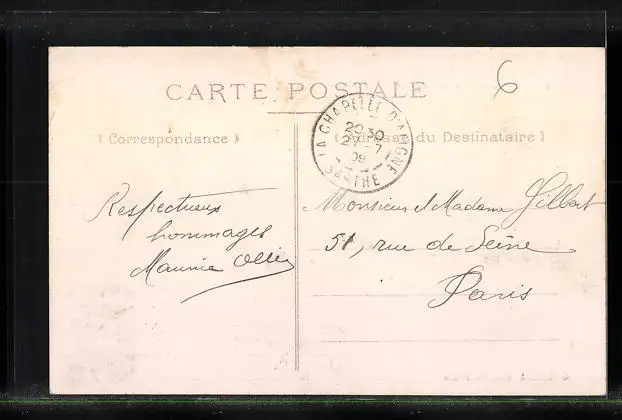 6
CARTE POSTALE
(Correspondance)
(Adresse du Destinataire)
LA CHAPELLE-D'ALIGNÉ
20 30
27-7
09
SARTHE
Respectueux
hommages
Maurice
Monsieur et Madame Gilbert
51, rue de Seine
Paris